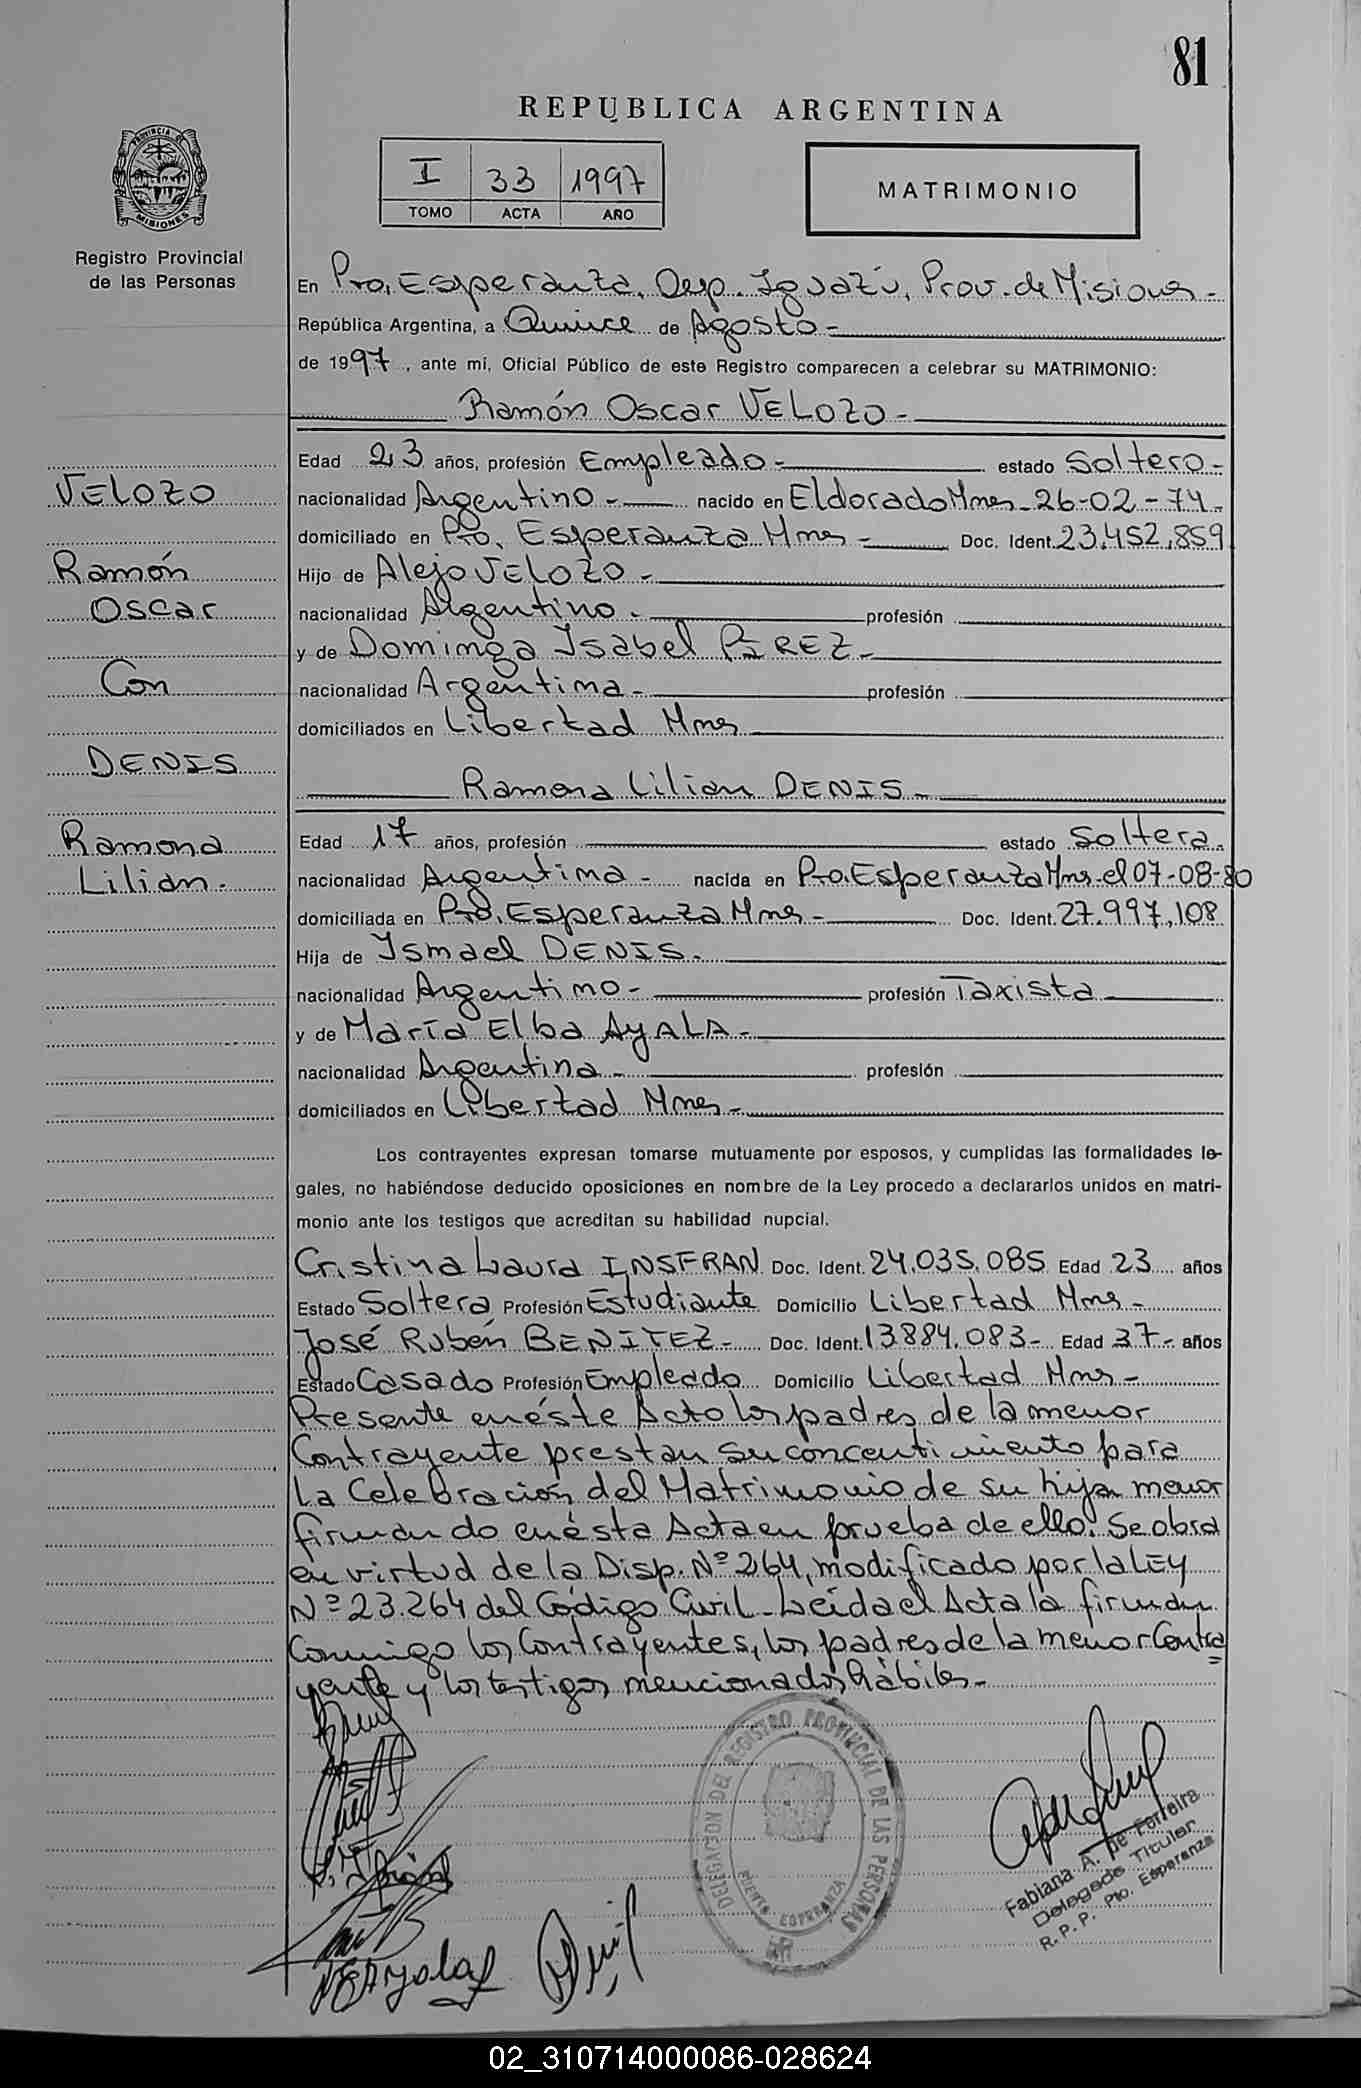 81
REPUBLICA ARGENTINA
I 33 1997
TOMO ACTA AÑO
MATRIMONIO
PROVINCIA DE MISIONES
Registro Provincial
de las Personas
En Pto. Esperanza, Dep. Iguazú, Prov. de Misiones-
República Argentina, a Quince de Agosto-
de 1997, ante mí, Oficial Público de este Registro comparecen a celebrar su MATRIMONIO:
Ramón Oscar VELOZO-
Edad 23 años, profesión Empleado- estado Soltero-
nacionalidad Argentino- nacido en Eldorado Mnes- 26-02-74-
domiciliado en Pto. Esperanza Mnes- Doc. Ident. 23.452.859
Hijo de Alejo VELOZO-
nacionalidad Argentino- profesión
y de Dominga Isabel PEREZ-
nacionalidad Argentina- profesión
domiciliados en Libertad Mnes
Ramona Lilian DENIS-
Edad 17 años, profesión estado Soltera-
nacionalidad Argentina- nacida en Pto. Esperanza Mnes el 07-08-80
domiciliada en Pto. Esperanza Mnes- Doc. Ident. 27.997.108
Hija de Ismael DENIS.
nacionalidad Argentino- profesión Taxista
y de María Elba AYALA-
nacionalidad Argentina- profesión
domiciliados en Libertad Mnes-
VELOZO
Ramón
Oscar
Con
DENIS
Ramona
Lilian.
Los contrayentes expresan tomarse mutuamente por esposos, y cumplidas las formalidades le-
gales, no habiéndose deducido oposiciones en nombre de la Ley procedo a declararlos unidos en matri-
monio ante los testigos que acreditan su habilidad nupcial.
Cristina Laura INSFRAN Doc. Ident. 24.035.085 Edad 23 años
Estado Soltera Profesión Estudiante Domicilio Libertad Mnes-
José Rubén BENITEZ- Doc. Ident. 13884.083- Edad 37- años
Estado Casado Profesión Empleado Domicilio Libertad Mnes-
Presente en éste Acto los padres de la menor
Contrayente prestan su concentimiento para
la Celebración del Matrimonio de su hija menor
firmando en ésta Acta en prueba de ello. Se obra
en virtud de la Disp. Nº 264, modificado por la LEY
Nº 23.264 del Código Civil- Leída el Acta la firman
Conmigo los Contrayentes, los padres de la menor Contra=
yente y los testigos mencionados hábiles-
DELEGACION DEL REGISTRO PROVINCIAL DE LAS PERSONAS
PUERTO ESPERANZA
Fabiana A. De Ferreira
Delegado Titular
R. P. P. Pto. Esperanza
02_310714000086-028624